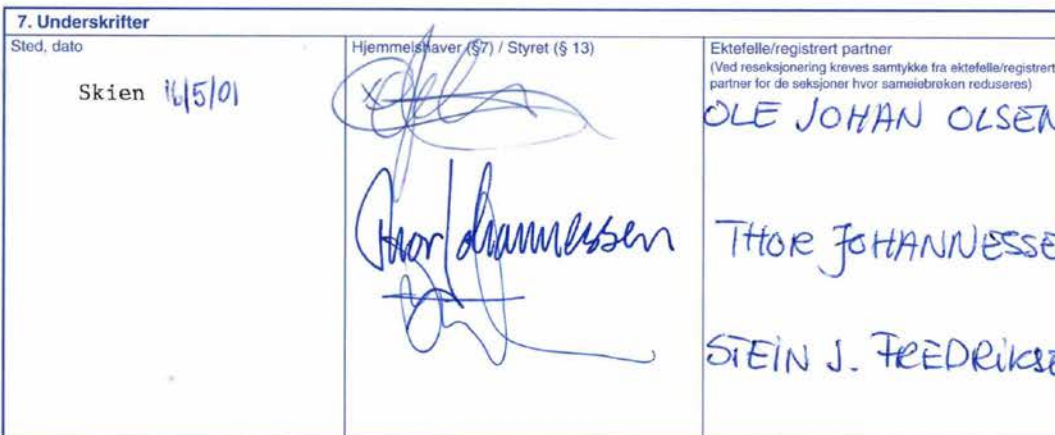 7. Underskrifter
Sted, dato
Skien 16/5/01
Hjemmelshaver (§7) / Styret (§ 13)
Thor Johannessen
Ektefelle/registrert partner
(Ved reseksjonering kreves samtykke fra ektefelle/registrert
partner for de seksjoner hvor sameiebrøken reduseres)
OLE JOHAN OLSEN
THOR JOHANNESSE
STEIN J. FREDRIKSE